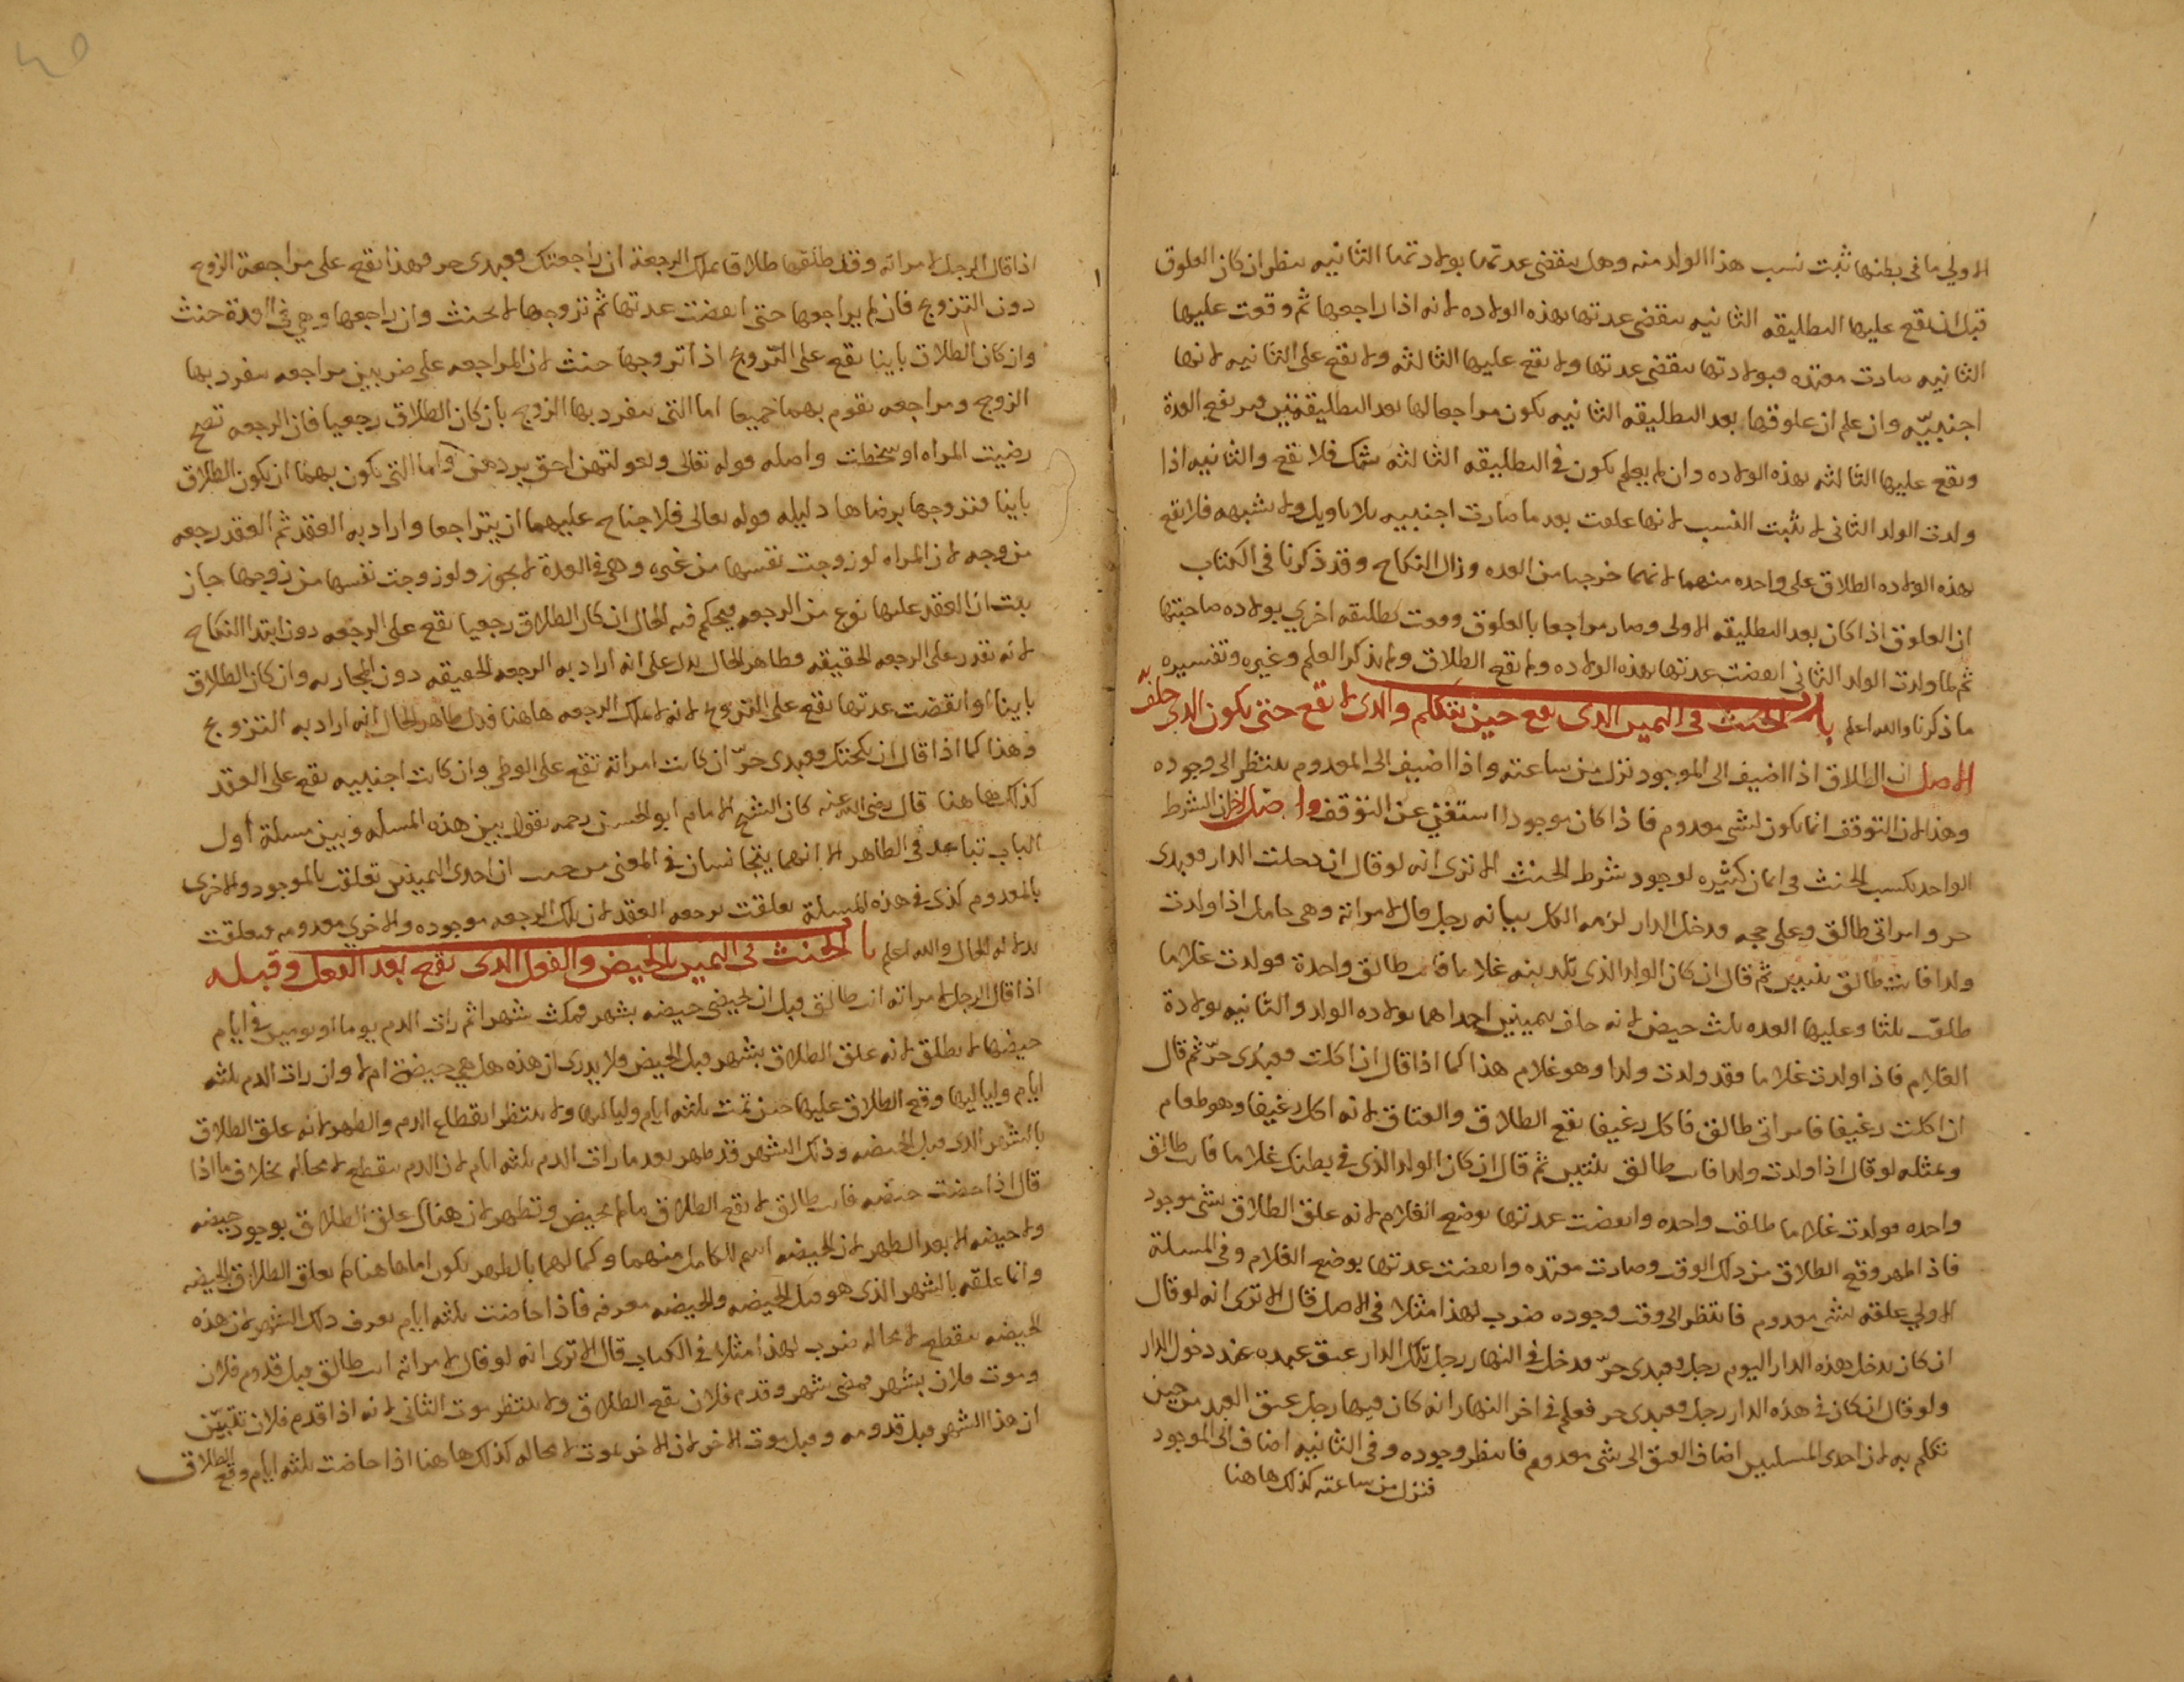 الاولي ما في بطنها ثبت نسب هذا الولد منه وهل ينقضي عدتها بولادتها الثانيه ينظر ان كان العلوق
قبل ان يقع عليها التطليقه الثانيه ينقضى عدتها بهذه الولاده لانه اذا راجعها ثم وقعت عليها
الثانيه صارت معتده فبولادتها ينقضى عدتها ولا يقع عليها الثالثه ولا يقع على الثانيه لانها
اجنبيّه وان علم ان علوقها بعد التطليقه الثانيه يكون مراجعا لها بعد التطليقتين ويرتفع العدة
ويقع عليها الثالثه بهذه الولاده وان لم يعلم يكون في التطليقه الثالثه شك فلا يقع والثانيه اذا
ولدت الولد الثانى لا يثبت النسب لانها علقت بعد ما صارت اجنبيه بلا تاويل ولا شبهه فلا يقع
بهذه الولاده الطلاق على واحده منهما لانهما خرجتا من العده وزال النكاح وقد ذكرنا في الكتاب
ان العلوق اذا كان بعد التطليقه الاولى وصار مراجعا بالعلوق ووقعت تطليقه اخرى بولاده صاحبتها
ثم لما ولدت الولد الثاني انقضت عدتها بهذه الولاده ولم يقع الطلاق ولم يذكر العلم وغيره وتفسيره
ما ذكرنا والله اعلم باب الحنث في اليمين الذى يقع حين يتكلم والذى لا يقع حتى يكون الذى حلف به
الاصل ان الطلاق اذا اضيف الى الموجود نزل من ساعته واذا اضيف الى المعدوم ينتظر الى وجوده
وهذا لان التوقف انما يكون لشى معدوم فاذا كان موجودا استغنى عن التوقف واصل اخر ان الشرط
الواحد يكسب الحنث في ايمان كثيره لوجود شرط الحنث الا ترى انه لو قال ان دخلت الدار فعبدى
حر وامراتي طالق وعلى حجه فدخل الدار لزمه الكل بيانه رجل قال لامراته وهي حامل اذا ولدت
ولدا فانت طالق ثنتين ثم قال ان كان الولد الذى تلدينه غلاما فانت طالق واحدة فولدت غلاما
طلقت ثلثا وعليها العده ثلث حيض لانه حلف بيمينين احداهما بولاده الولد والثانيه بولادة
الغلام فاذا ولدت غلاما فقد ولدت ولدا وهو غلام هذا كما اذا قال ان اكلت فعبدى حرّ ثم قال
ان اكلت رغيفا فامراتي طالق فاكل رغيفا يقع الطلاق والعتاق لانه اكل رغيفا وهو طعام
وبمثله لو قال اذا ولدت ولدا فانت طالق ثنتين ثم قال ان كان الولد الذى في بطنك غلاما فانت طالق
واحده فولدت غلاما طلقت واحده وانقضت عدتها بوضع الغلام لانه علق الطلاق بشى موجود
فاذا ظهر وقع الطلاق من ذلك الوقت وصارت معتده وانقضت عدتها بوضع الغلام وفي المسلة
الاولي علقه بشى معدوم فانتظر الى وقت وجوده ضرب لهذا مثلا في الاصل قال الا ترى انه لو قال
ان كان يدخل هذه الدار اليوم رجل فعبدى حرّ فدخل في النهار رجل تلك الدار عتق عبده عند دخول الدار
ولو قال ان كان في هذه الدار رجل فعبدى حر فعلم في اخر النهار انه كان فيها رجل عتق العبد من حين
تكلم به لان احدى المسلتين اضاف العتق الى شى معدوم فانتظر وجوده وفي الثانيه اضاف الى الموجود
فنزل من ساعته كذلك هاهنا
اذا قال الرجل لامراته وقد طلقها طلاقا يملك الرجعة ان راجعتك فعبدى حر فهذا يقع على مراجعة الزوج
دون التزوج فان لم يراجعها حتى انقضت عدتها ثم تزوجها لا يحنث وان راجعها وهي في العدة حنث
وان كان الطلاق باينا يقع على التزوج اذا تزوجها حنث لان المراجعه على ضربين مراجعه ينفرد بها
الزوج ومراجعه يقوم بهما جميعا اما التي ينفرد بها الزوج بان كان الطلاق رجعيا فان الرجعه تصح
رضيت المراه او سخطت واصله قوله تعالى وبعولتهن احق بردهن واما التى يكون بهما ان يكون الطلاق
باينا فتزوجها برضاها دليله قوله تعالى فلا جناح عليهما ان يتراجعا واراد به العقد ثم العقد رجعه
من وجه لان المراه لو زوجت نفسها من غيره وهي في العدة لا يجوز ولو زوجت نفسها من زوجها جاز
بيت ان العقد عليها نوع من الرجعه فيحكم فيه الحال ان كان الطلاق رجعيا يقع على الرجعه دون ابتدا النكاح
لانه يقدر على الرجعه الحقيقه وظاهر الحال يدل على انه اراد به الرجعه الحقيقه دون المجازيه وان كان الطلاق
باينا او انقضت عدتها يقع على التزوج لانه لا يملك الرجعه هاهنا فدل ظاهر الحال انه اراد به التزوج
وهذا كما اذا قال ان نكحتك فعبدى حرّ ان كانت امراته تقع على الوطى وان كانت اجنبيه يقع على العقد
كذلك هاهنا قال رضى الله عنه كان الشيخ الامام ابو الحسن رحمه يقول بين هذه المسله وبين مسلة اول
الباب تباعد في الظاهر الا انهما يتجانسان في المعنى من حيث ان احدى اليمينين تعلقت بالموجود والاخرى
بالمعدوم كذى في هذه المسلة تعلقت برجعه العقد لان تلك الرجعه موجوده والاخرى معدومه فتعلقت
بدلاله الحال والله اعلم باب الحنث في اليمين بالحيض والقول الذى يقع بعد الفعل وقبله
اذا قال الرجل لامراته انت طالق قبل ان تحيضي حيضه بشهر فمكثت شهرا ثم رات الدم يوما او يومين في ايام
حيضها لا تطلق لانه علق الطلاق بشهر قبل الحيض ولا يدرى ان هذه هل هي حيضة ام لا وان رات الدم ثلثه
ايام ولياليها وقع الطلاق عليها حين تمت ثلثه ايام ولياليها ولا ينتظر انقطاع الدم والطهر لانه علق الطلاق
بالشهر الذى قبل الحيضه وذلك الشهر قد ظهر بعد ما رات الدم ثلثه ايام لان الدم ينقطع لا محاله بخلاف ما اذا
قال اذا حضت حيضه فانت طالق لا يقع الطلاق ما لم تحيض وتطهر لان هناك علق الطلاق بوجود حيضه
ولا حيضه الا بعد الطهر لان الحيضه اسم للكامل منهما وكمالهما بالطهر يكون اما هاهنا لم يعلق الطلاق بالحيضه
وانما علقه بالشهر الذى هو قبل الحيضه والحيضه معرفه فاذا حاضت ثلثه ايام يعرف ذلك الشهر لان هذه
الحيضه ينقطع لا محاله ضرب لهذا مثلا في الكتاب قال الا ترى انه لو قال لامراته انت طالق قبل قدوم فلان
وموت فلان بشهر فمضى شهر وقدم فلان يقع الطلاق ولا ينتظر موت الثاني لانه اذا قدم فلان تبيّن
ان هذا الشهر قبل قدومه وقبل موت الاخر لان الاخر يموت لا محاله كذلك هاهنا اذا حاضت ثلثه ايام وقع الطلاق